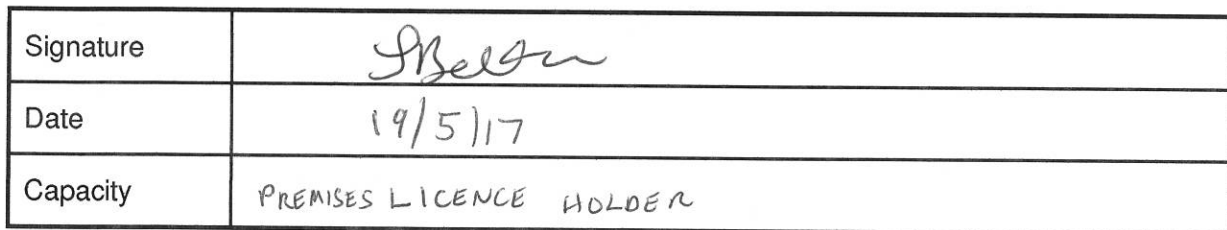 Signature SBelton
Date 19/5/17
Capacity PREMISES LICENCE HOLDER